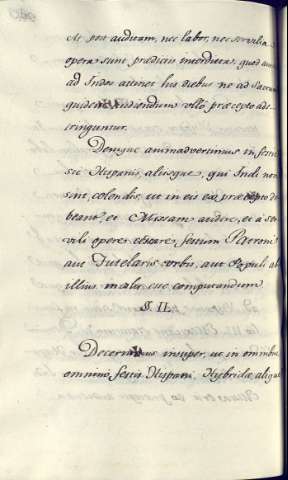 et post auditam, nec labor, nec servilia
opera sunt prædictis interdicta, quod autem
ad Indos attinet his diebus ne ad Sacrum
quidem audiendum ullo præcepto ads-
tringuntur.
Denique animadvertimus in festis
sic Hispanis, aliisque, qui Indi non
sint, colendis, ut in eis ex præcepto de-
beant, et Missam audire, et à ser-
vili opere cessare, festum Patroni
aut Tutelaris Urbis, aut Populi ab
illius inalienove computandum
§. II.
Decernimus insuper, ut in omnibus
omnino festis Hispani, Hybridæ aliique